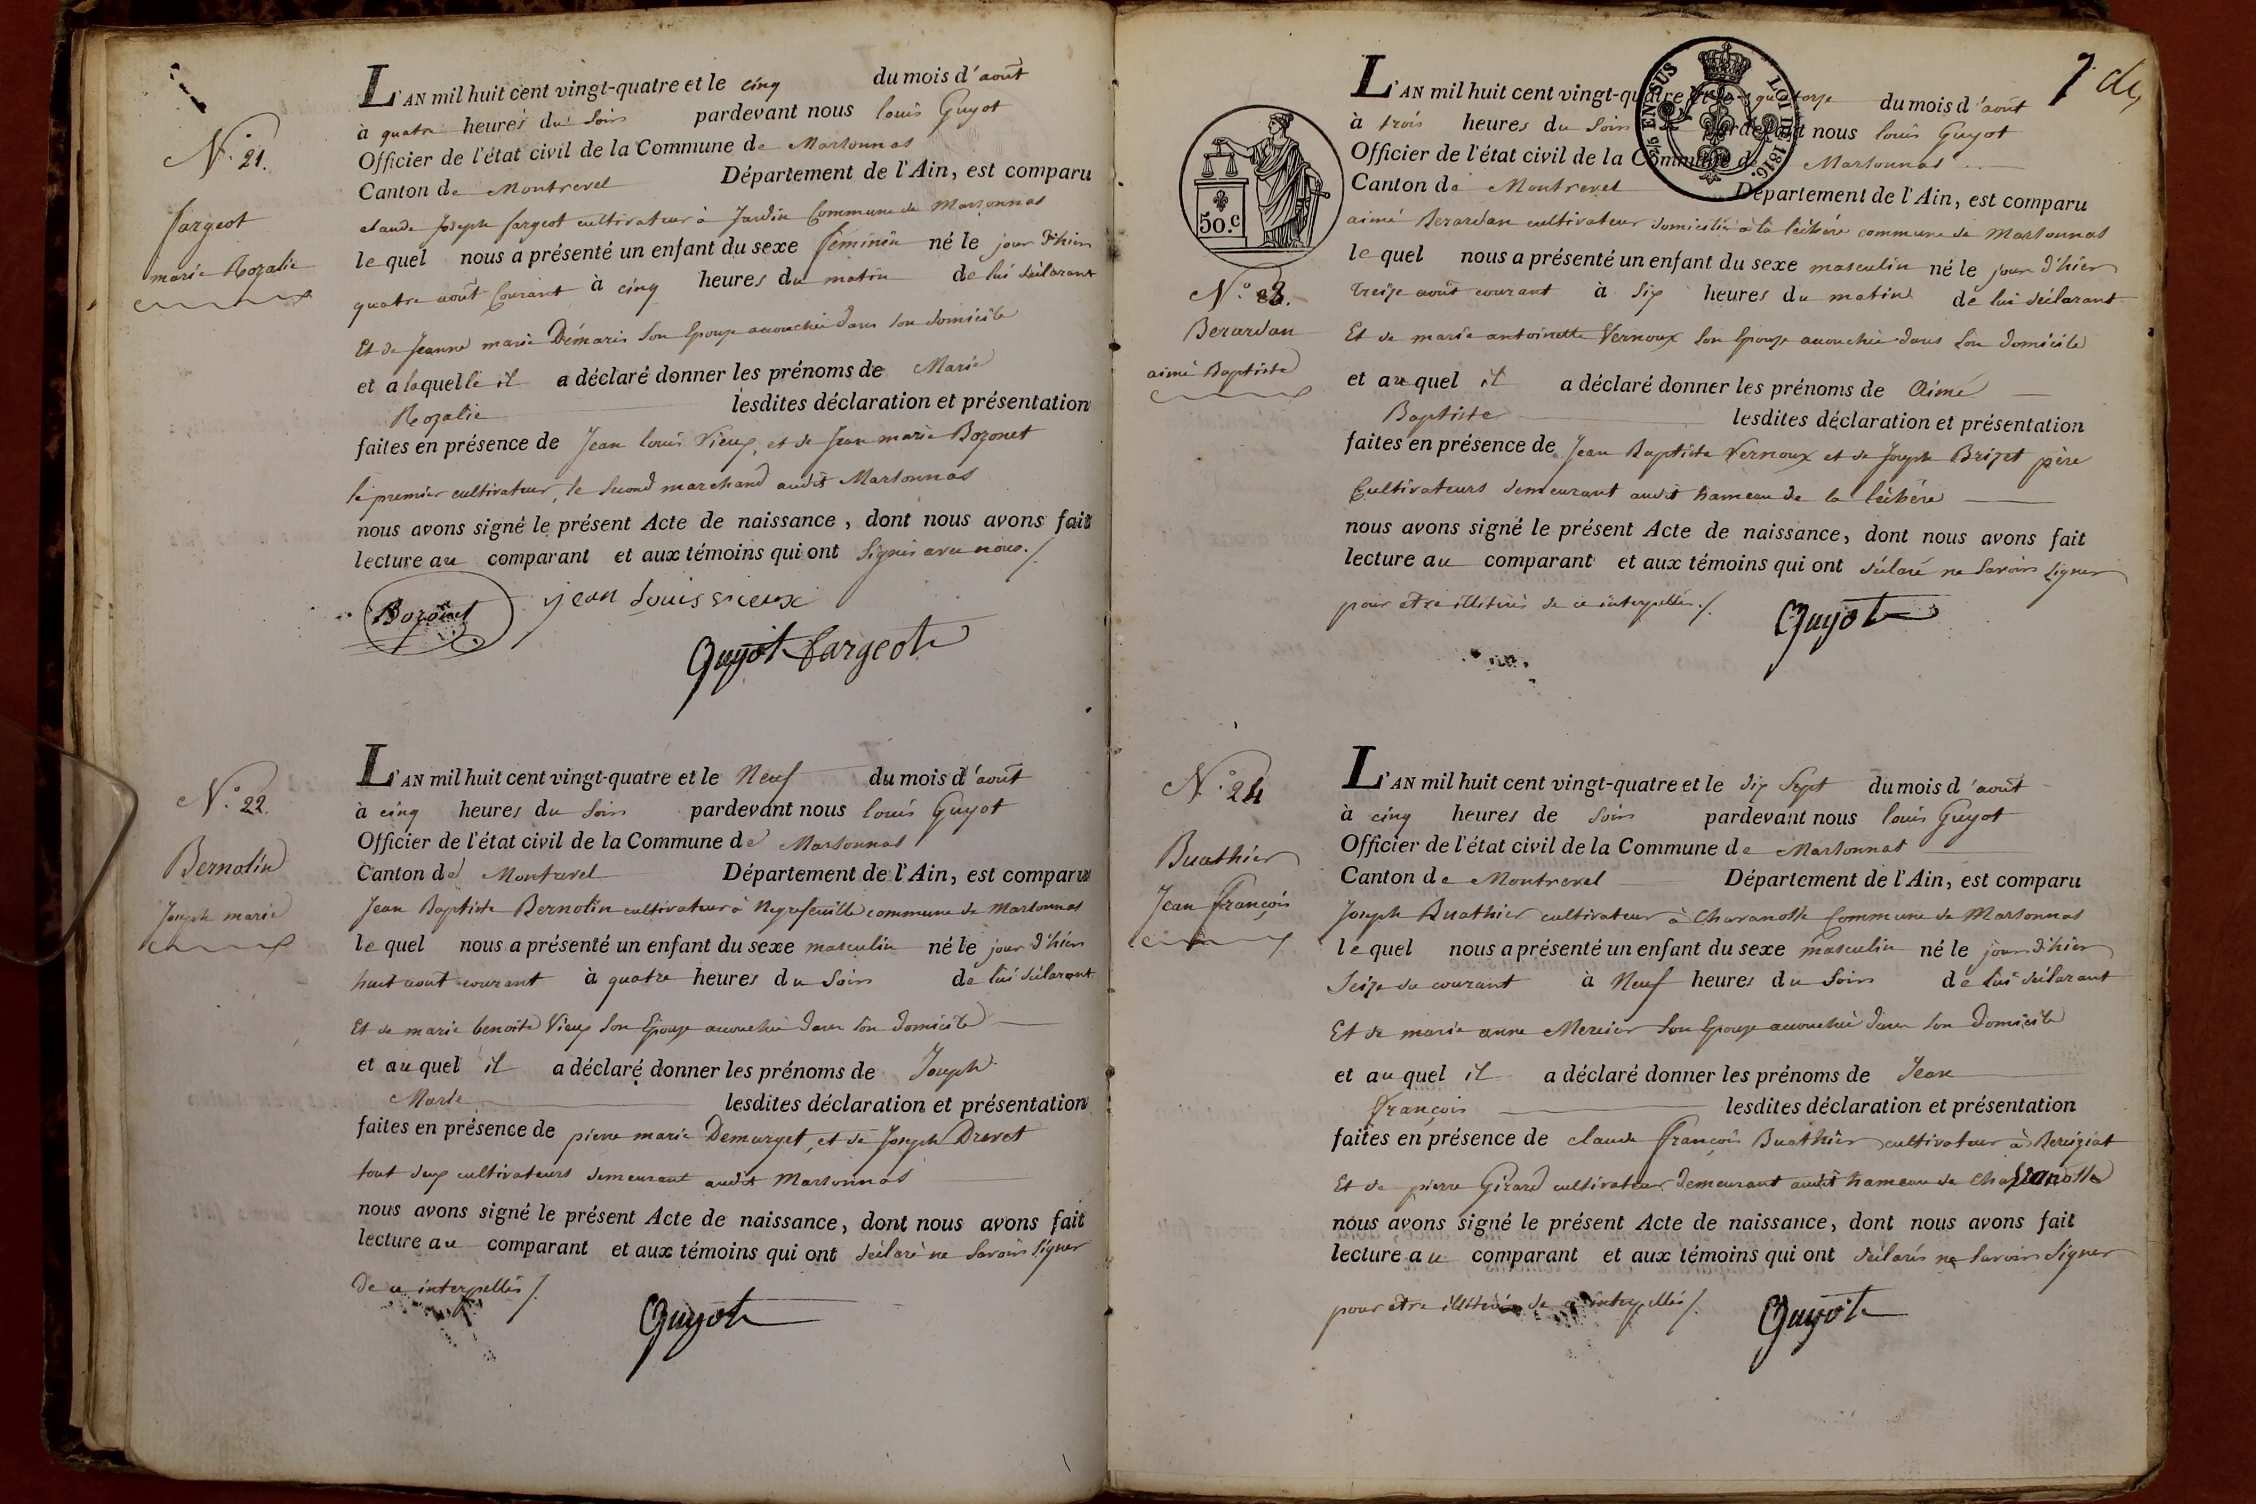 N.° 21.
Fargeot
marie Rozalie
L'AN mil huit cent vingt-quatre et le cinq du mois d'août
à quatre heures du soir pardevant nous louis Guyot
Officier de l'état civil de la Commune de Marsonnas
Canton de Montrevel Département de l'Ain, est comparu
claude Joseph fargeot cultivateur à Jardin Commune de Marsonnas
le quel nous a présenté un enfant du sexe féminin né le jour d'hier
quatre août Courant à cinq heures du matin de lui déclarant
Et de Jeanne marie Démaris son Epouse accouchée dans son domicile
et a laquelle il a déclaré donner les prénoms de Marie
Rozalie lesdites déclaration et présentation
faites en présence de Jean louis Vieux, et de Jean marie Bozonet
le premier cultivateur, le second marchand audit Marsonnas
nous avons signé le présent Acte de naissance, dont nous avons fait
lecture au comparant et aux témoins qui ont signés avec nous./.
Bozonet jean Louis vieux
Guyot fargeot
N.° 22.
Bernolin
Joseph marie
L'AN mil huit cent vingt-quatre et le Neuf du mois d'août
à cinq heures du soir pardevant nous louis Guyot
Officier de l'état civil de la Commune de Marsonnas
Canton de Montrevel Département de l'Ain, est comparu
Jean Baptiste Bernolin cultivateur à Negrefeuille commune de Marsonnas
le quel nous a présenté un enfant du sexe masculin né le jour d'hier
huit aout courant à quatre heures du soir de lui déclarant
Et de marie benoite Vieux son Epouse accouchée dans son domicile
et au quel il a déclaré donner les prénoms de Joseph
Marie lesdites déclaration et présentation
faites en présence de pierre marie Demurget, et de Joseph Drevet
tout deux cultivateurs demeurant audit Marsonnas
nous avons signé le présent Acte de naissance, dont nous avons fait
lecture au comparant et aux témoins qui ont déclaré ne savoir signer
de ce interpellés /.
Guyot
7
25 EN SUS LOI DE 1816.
50.c
N.°
Berardan
aimé Baptiste
L'AN mil huit cent vingt-quatre et le quatorze du mois d'août
à trois heures du soir pardevant nous louis Guyot
Officier de l'état civil de la Commune de Marsonnas
Canton de Montrevel Département de l'Ain, est comparu
aimé Berardan cultivateur domicilié à la léchère commune de Marsonnas
le quel nous a présenté un enfant du sexe masculin né le jour d'hier
treize août courant à six heures du matin de lui déclarant
Et de marie antoinette Vernoux son Epouse accouchée dans son domicile
et au quel il a déclaré donner les prénoms de Aimé
Baptiste lesdites déclaration et présentation
faites en présence de Jean Baptiste Vernoux et de Joseph Brizet père
Cultivateurs demeurant audit hameau de la léchère
nous avons signé le présent Acte de naissance, dont nous avons fait
lecture au comparant et aux témoins qui ont déclaré ne savoir signer
pour etre illitirés de ce interpellés./.
Guyot
N.° 24
Buathier
Jean François
L'AN mil huit cent vingt-quatre et le dix sept du mois d'août
à cinq heures de soir pardevant nous louis Guyot
Officier de l'état civil de la Commune de Marsonnas
Canton de Montrevel Département de l'Ain, est comparu
Joseph Buathier cultivateur à Chavanosse Commune de Marsonnas
le quel nous a présenté un enfant du sexe masculin né le jour d'hier
Seize du courant à Neuf heures du soir de lui déclarant
Et de marie anne Mercier son Epouse accouchée dans son domicile
et au quel il a déclaré donner les prénoms de Jean
François lesdites déclaration et présentation
faites en présence de claude François Buathier cultivateur à Bereiziat
Et de pierre Girard cultivateur demeurant audit hameau de Chavanosse
nous avons signé le présent Acte de naissance, dont nous avons fait
lecture au comparant et aux témoins qui ont déclarés ne savoir signer
pour etre illitirés de ce interpellés /.
Guyot